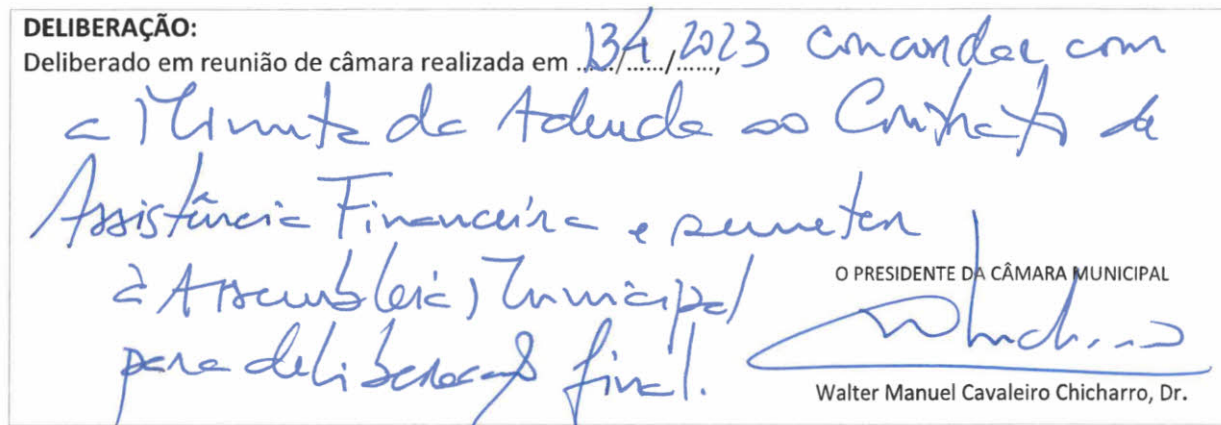 DELIBERAÇÃO:
Deliberado em reunião de câmara realizada em ....../....../......, 13/4/2023 concordar com
a Minuta da Adenda ao Contrato de
Assistência Financeira e remeter
à Assembleia Municipal
para deliberação final.
O PRESIDENTE DA CÂMARA MUNICIPAL
Walter Manuel Cavaleiro Chicharro, Dr.